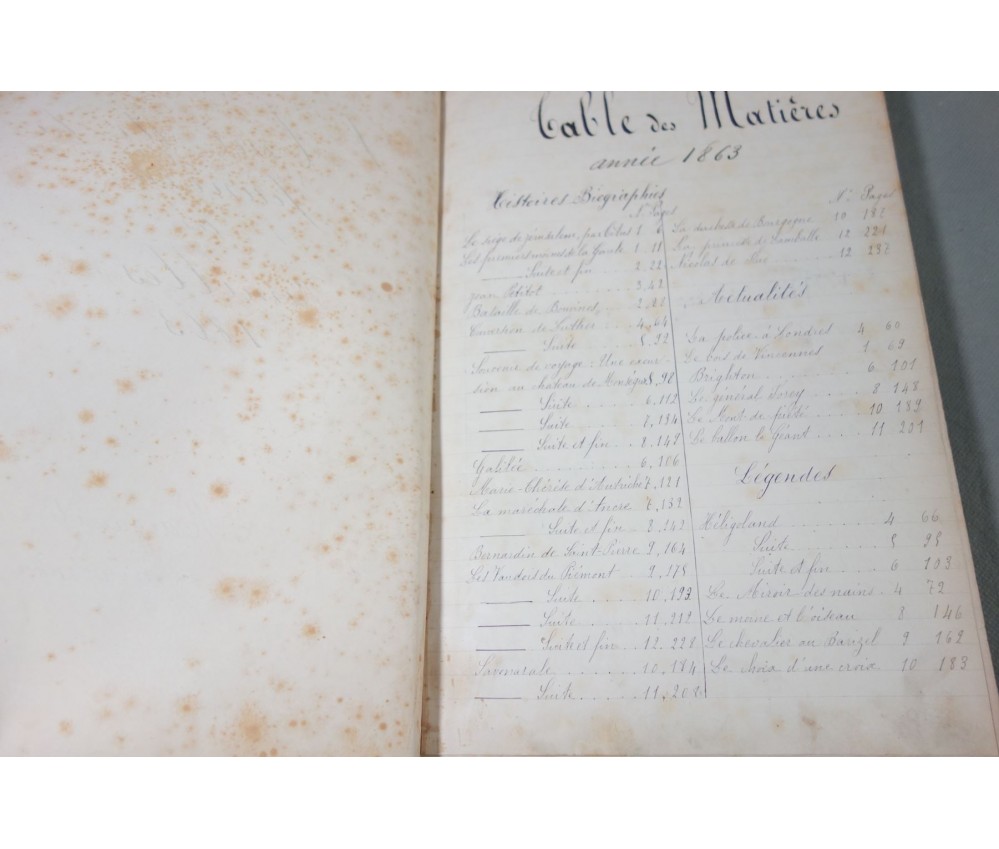 Table des Matières
année 1863
Histoires Biographies
Nos Pages
Le siège de Jérusalem, par Titus 1 6
Les premiers de la Gaule 1 11
Suite et fin 2.22
Jean Petitot 3.42
Bataille de Bouvines 2.
Conversion de Luther 4.64
Suite 5.92
Souvenir de voyage : Une excur-
sion au château de 5.98
Suite 6.112
Suite 7.134
Suite et fin 8.149
Galilée 6.106
Marie-Thérèse d'Autriche 7.121
La maréchale d'Ancre 7.132
Suite et fin 8.142
Bernardin de Saint-Pierre 9.164
Les Vaudois du Piémont 9.175
Suite 10.193
Suite 11.212
Suite et fin 12.228
Savonarole 10.184
Suite 11.20
Nos Pages
La duchesse de Bourgogne 10 182
La princesse de Lamballe 12 221
Nicolas de 12 237
Actualités
La police à Londres 4 60
Le bois de Vincennes 1 69
Brighton 6 101
Le général Forey 8 148
Le Mont de piété 10 189
Le ballon le Géant 11 201
Légendes
Héligoland 4 66
Suite 5 95
Suite et fin 6 103
Le Miroir des nains 4 72
Le moine et l'oiseau 8 146
Le chevalier au Barizel 9 162
Le choix d'une croix 10 183